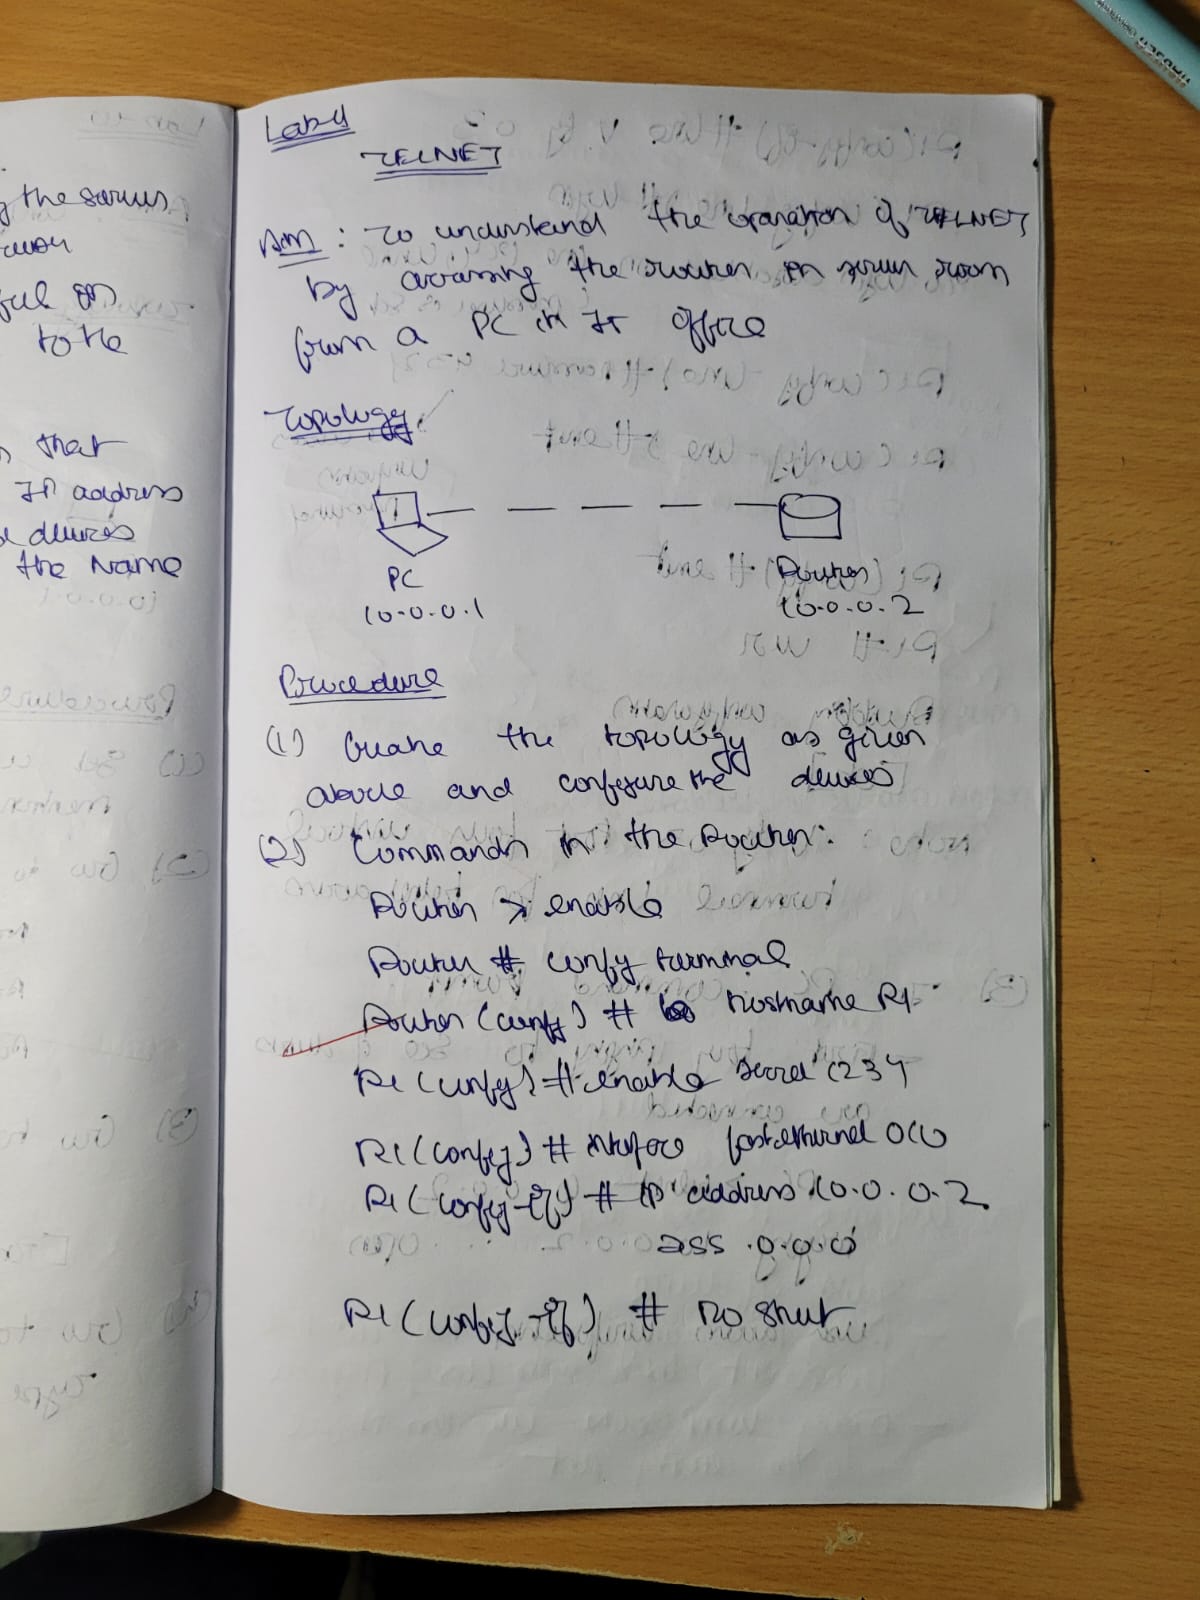 y the servers
ful as
to the
that
IP address
devices
the Name
Lab 4
TELNET
Aim : To understand the operation of TELNET
by accessing the router in server room
from a PC in IT office
Topology
PC
10.0.0.1
Router
10.0.0.2
Procedure
(1) Create the topology as given
above and configure the devices
(2) Commands in the Router:
Router > enable
Router # config terminal
Router (config) # hostname R1
R1 (config) # enable secret 1234
R1 (config) # interface fastethernet 0/0
R1 (config-if) # ip address 10.0.0.2
255.0.0.0
R1 (config-if) # no shut